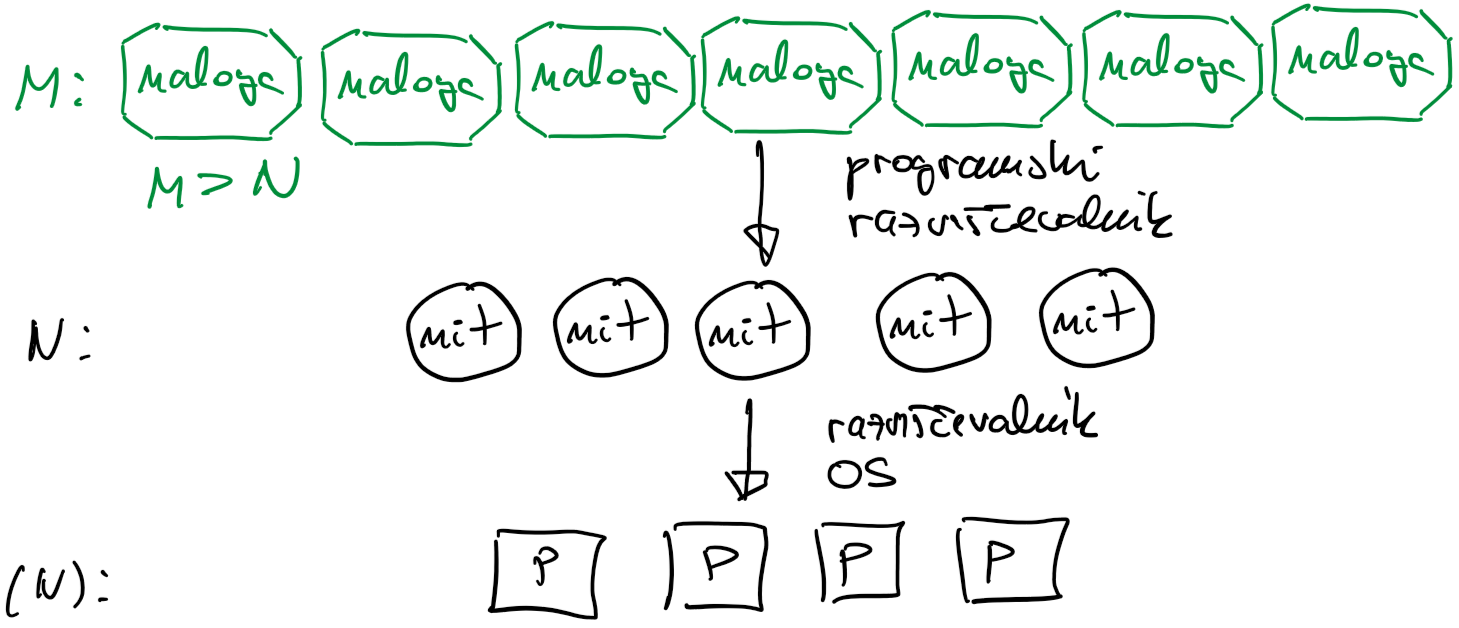 M: naloga naloga naloga naloga naloga naloga naloga
M > N
programski
razvrščevalnik
N: nit nit nit nit nit
razvrščevalnik
OS
(N): P P P P